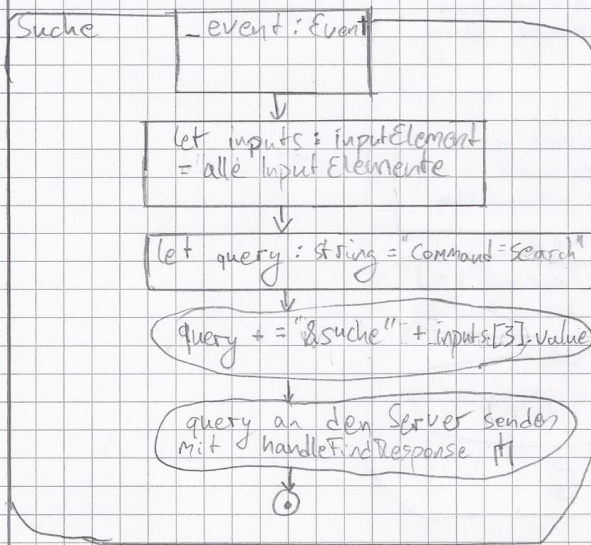 Suche
_event : Event
let inputs : inputElement
= alle Input Elemente
let query : string = "Command=Search"
query + = "&suche" + inputs.[3].value
query an den Server senden
mit handleFindResponse